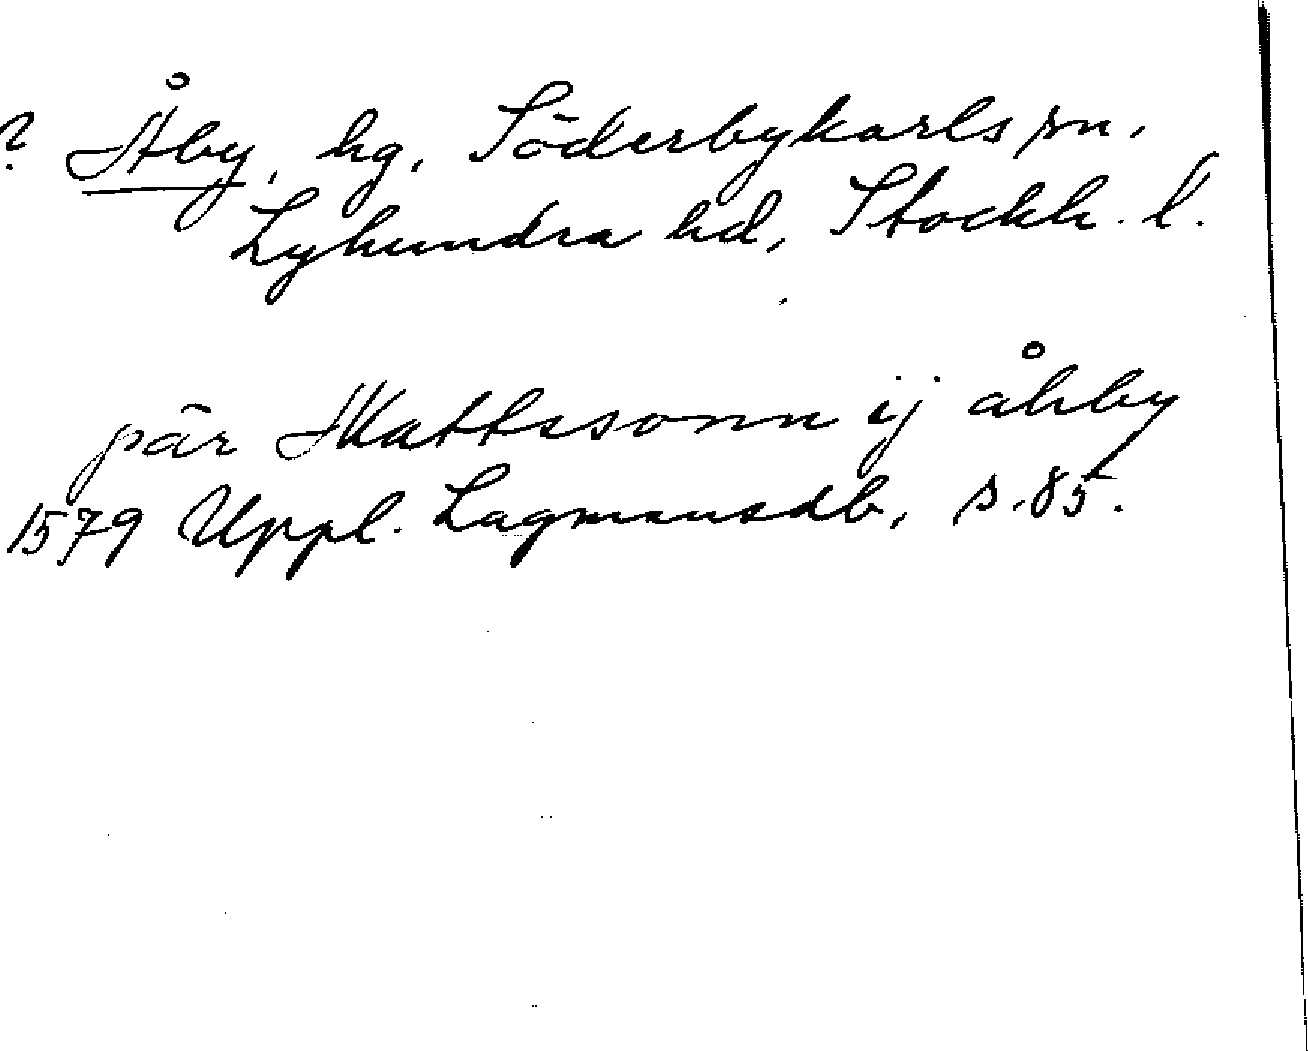 ? Åby, hg, Söderbykarls sn,
Lyhundra hd, Stockh. l.
pär Mattssonn ij åhby
1579 Uppl. Lagmansdb, s. 85.